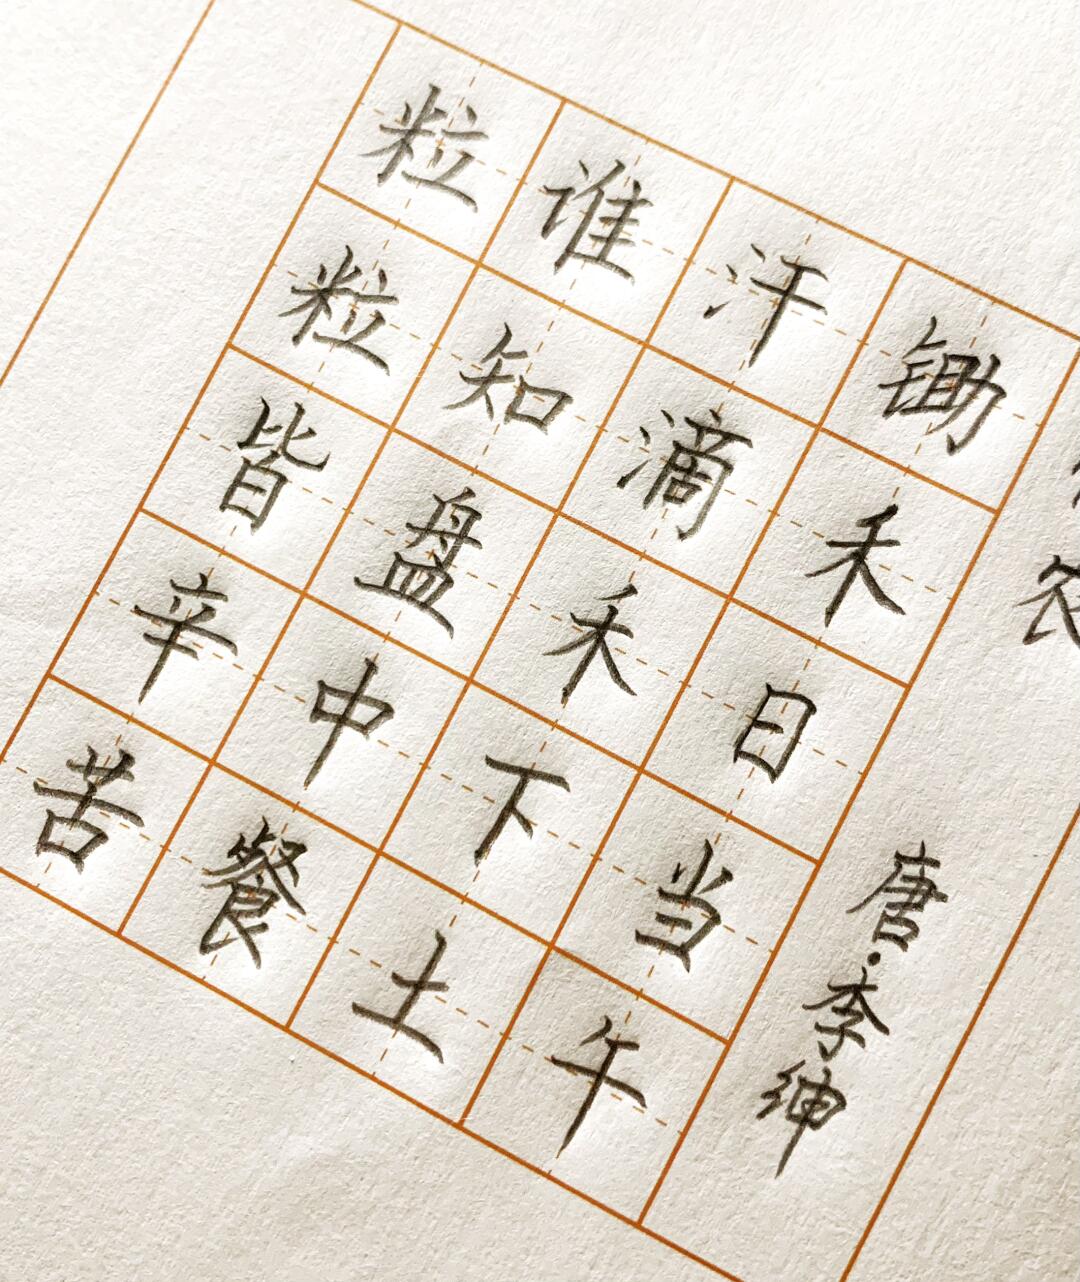 农
唐·李绅
锄禾日当午
汗滴禾下土
谁知盘中餐
粒粒皆辛苦